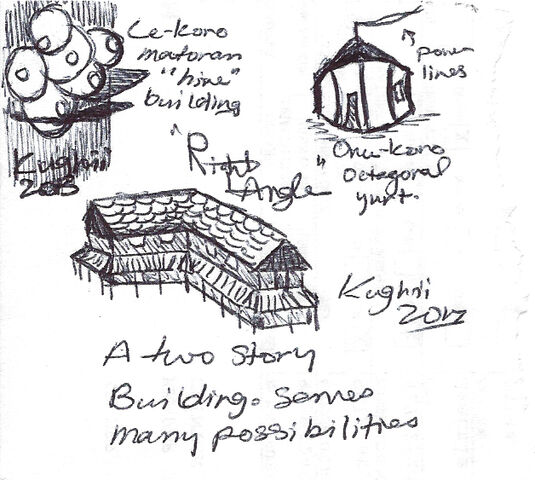 Le-Koro
matoran
"hive"
building
Kughii
2013
power
lines
Onu-koro
Octegoral
yurt.
Right
Angle
Kughii
2012
A two story
Building. Serves
many possibilities